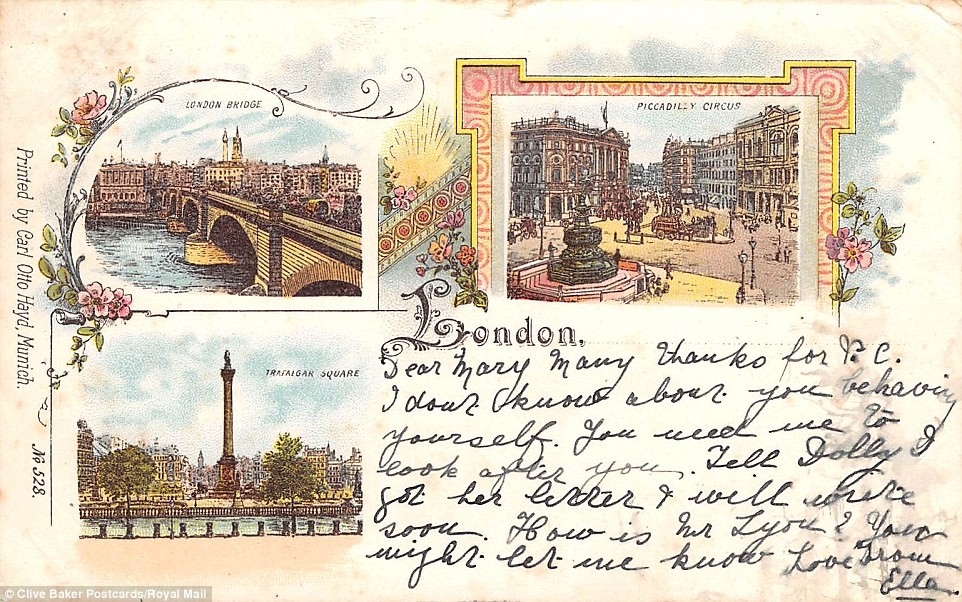 LONDON BRIDGE
PICCADILLY CIRCUS
TRAFALGAR SQUARE
Printed by Carl Otto Hayd, Munich.
No 528.
London,
Dear Mary Many thanks for P.C.
I dont know about you behaving
yourself. You need me to
look after you. Tell Dolly I
got her letter & will write
soon. How is Mr Lyon? You
might let me know Love from
Ella.
© Clive Baker Postcards/Royal Mail